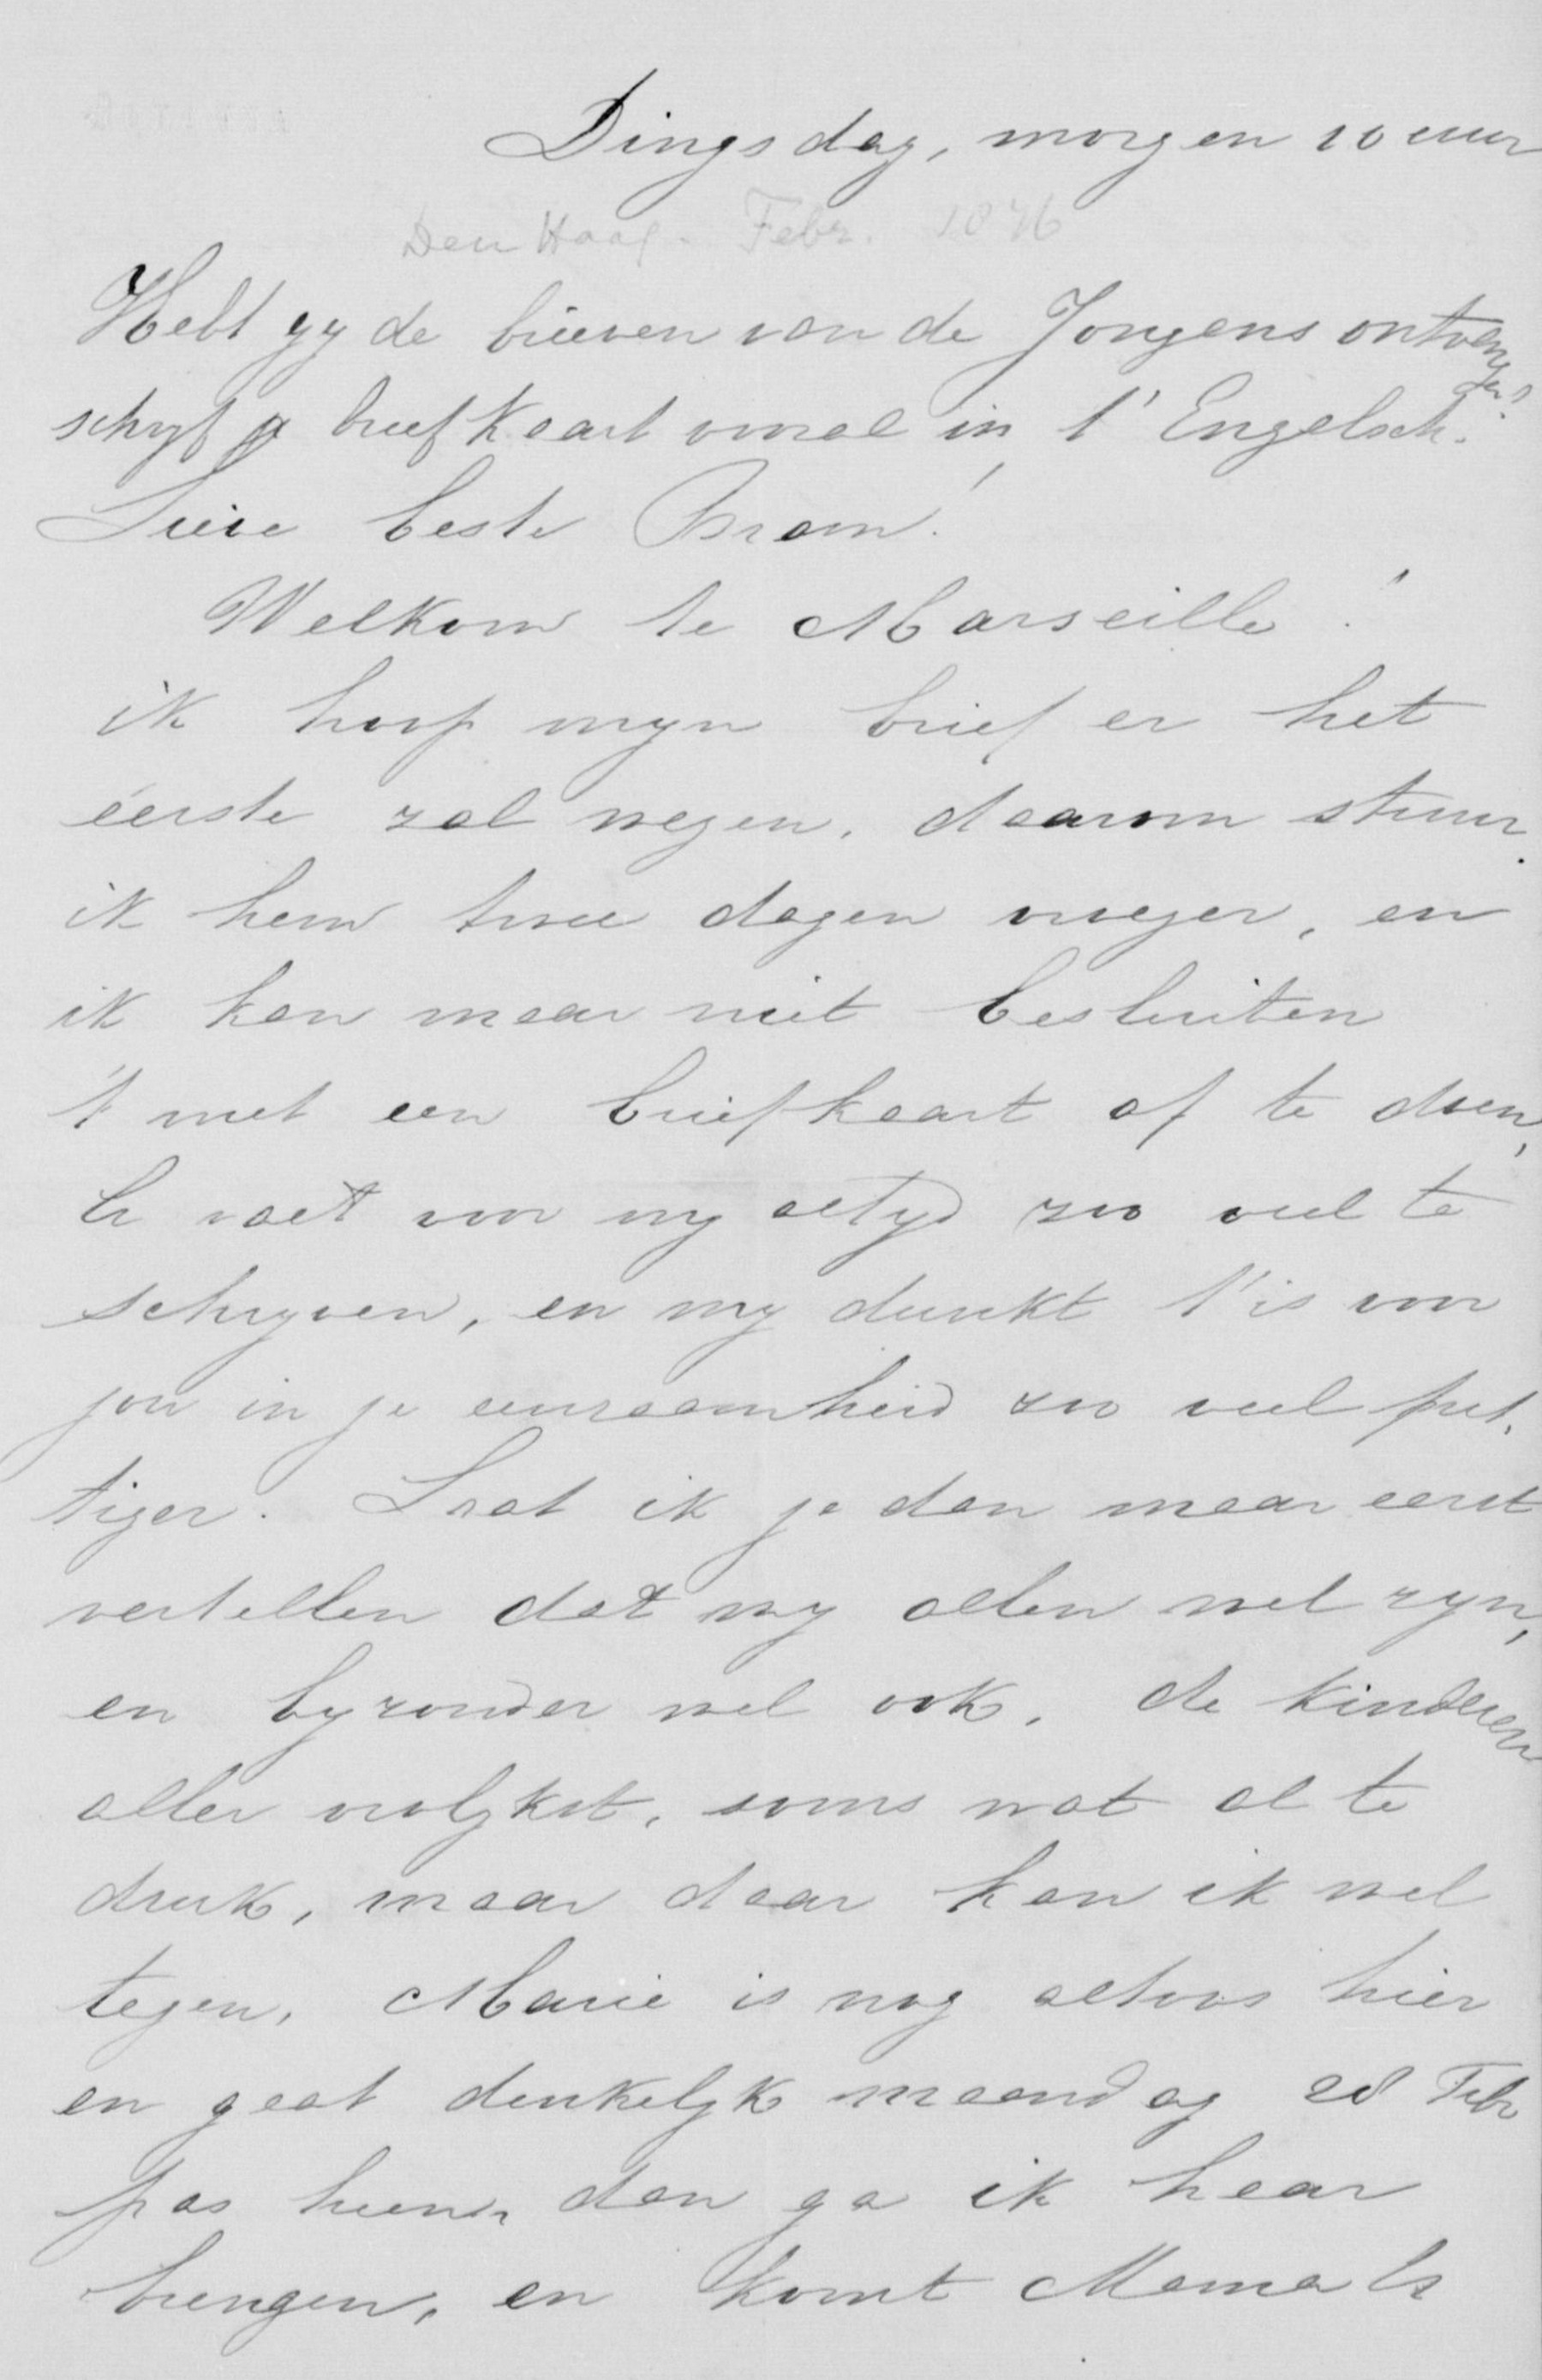 Dingsdag, morgen 10 uur
Den Haag. Febr. 1876
Hebt gy de brieven van de Jongens ontvangen?
schryf briefkaart vooral in 't Engelsch.
Lieve beste Bram!
Welkom te Marseille!
ik hoop myn brief er het
eerste zal wezen, daarom stuur
ik hem twee dagen vroeger, en
ik kan maar niet besluiten
't met een briefkaart af te doen,
Er valt voor my altyd zoo veel te
schryven, en my dunkt 't is voor
jou in je eenzaamheid zoo veel pret,
tiger. Laat ik je dan maar eerst
vertellen dat wy allen wel zyn,
en byzonder wel ook, de kinderen
aller vrolykst, soms wat al te
druk, maar daar kan ik wel
tegen, Marie is nog altoos hier
en gaat denkelyk maandag 28 Febr
pas heen, dan ga ik haar
brengen, en komt Mama Ls